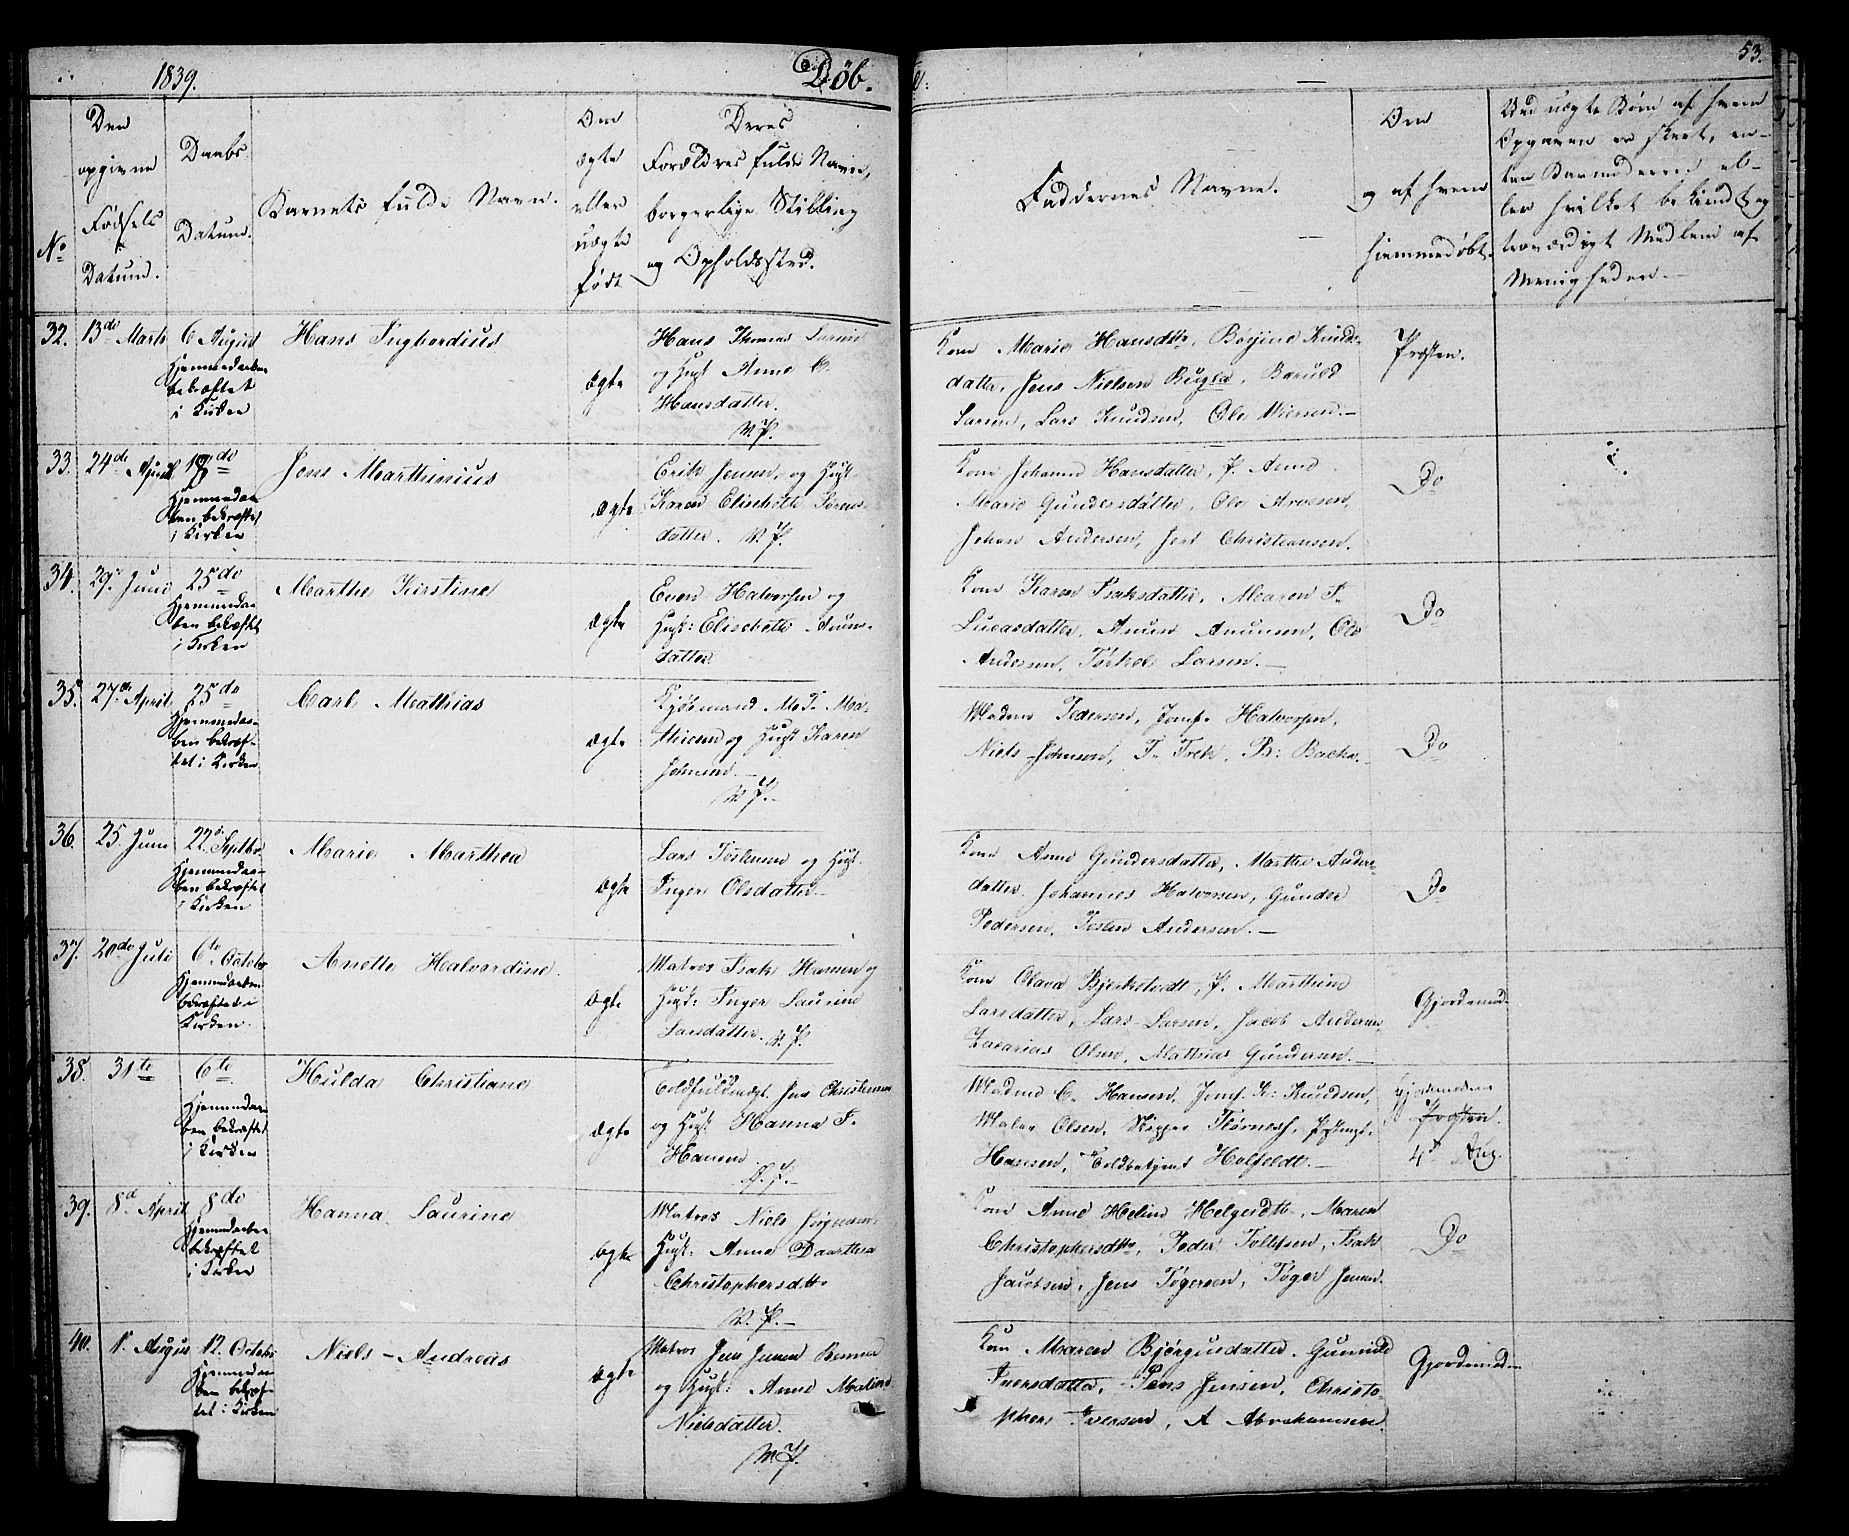 1839.
Döb.
53.
No
Den
opgivne
Fødsels
Datum.
Daabs
Datum.
Barnets fulde Navn.
Om
ægte
eller
uægte
født
Deres
Forældres fulde Navne,
borgerlige Stilling
og Opholdssted.
Faddernes Navne.
Om
og af hvem
hjemmedøbt.
Ved uægte Børn af hvem
Opgaven er skeet, en-
ten Barnmoderen el-
ler hvilket bekiendt og
troværdigt Medlem af
Menigheden.
32.
13de Marts
6 August
Hjemmedaaben
bekræftet
i Kirken
Hans Ingbordius
ægte
Hans Thomas Larsen
og Hust Anne C.
Hansdatter.
V. P.
Kone Marie Hansdtr, Børgine Knuds-
datter, Jens Nielsen Bugla, Baruld
Larsen, Lars Knudsen, Ole Wiersen.
Præsten.
33.
24de April
18de
Hjemmedaa-
ben bekræftet
i Kirken
Jens Marthinius
ægte
Erik Jensen, og Hust
Karen Elisebeth Sørens-
datter. V. P.
Kone Johanne Hansdatter, P. Anne
Marie Gundersdatter, Ole Arvesen,
Johan Andersen, Jens Christiansen.
Do
34.
29. Juni
25de
Hjemmedaa-
ben bekræftet
i Kirken
Marthe Kirstine
ægte
Even Halvorsen og
Hust: Elisebeth Anun-
datter
Kone Karen Isaksdatter, Maren F.
Lucasdatter, Anun Anunsen, Ole
Andersen, Torkel Larsen.
Do
35.
27de April
25de
Hjemmedaa-
ben bekræf-
tet i Kirken
Carl Mathias
ægte
Kjöbmand M. F. Ma-
thiesen og Hust Karen
Johnsen.
V. P.
Madme Pedersen, Jomf. Halvorsen,
Niels Johnsen, F. Treh, B: Backe.
Do
36.
25. Juni
22de Septbr
Hjemmedaa-
ben bekræftet
i Kirken
Marie Marthea
ægte
Lars Tostensen og Hust.
Inger Olsdatter.
Kone Anne Gundersdatter, Marthe Anders-
datter. Johannes Halvorsen, Gunder
Pedersen, Tosten Andersen.
Do
37.
20de Juli
6te October
Hjemmedaaben
bekræftet i
Kirken.
Anette Halvordine
ægte
Matros Isak Hansen og
Hust: Inger Laurine
Larsdatter. V. P.
Kone Olava Bjerketvedt, P. Marthine
Larsdatter, Lars Larsen, Jacob Andersen,
Zacarias Olsen, Mathias Gundersen.
Gjordemod-
38.
31te
6te
Hjemmedaa-
ben bekræftet
i Kirken
Hulda Christiane
ægte
Toldfuldmægt. Jens Christensen
og Hust Hanna F.
Hansen
Madme C. Hansen, Jomf. K: Knudsen,
Maler Olsen, Skipper Flørnæs,
Hansen, Toldbetjent Holfeldt.
Gjordemoderen
Præsten.
4de Aug.
39.
8de April
8de
Hjemmedaaben
bekræftet
i Kirken
Hanna Laurine
ægte
Matros Niels
Hust: Anne Daarthea
Christophersdtr
V. P.
Kone Anne Heline Helgesdtr, Maren
Christophersdtr, Peder Tollefsen, Isak
Jacobsen, Jens Tögersen, Töger Jensen
Do
40.
1. August
12. October
Hjemmedaa-
ben bekræf-
tet i Kirken
Niels Andreas
ægte
Matros Jens Jensen
og Hust: Anne Maline
Nielsdatter.
V. P.
Kone Maren Bjørgusdatter, Gunnild
Iversdatter, Jens Jensen, Christo-
pher Iversen, A Abrahamsen.
Gjordemod-